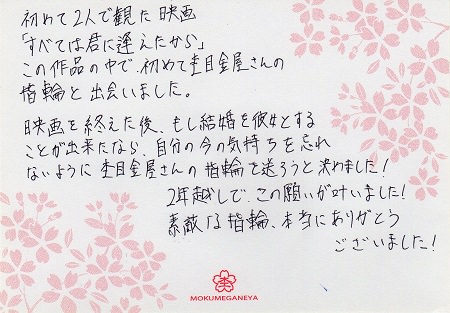 初めて2人で観た映画
「すべては君に逢えたから」
この作品の中で、初めて杢目金屋さんの
指輪と出会いました。
映画を終えた後、もし結婚を彼女とする
ことが出来たなら、自分の今の気持ちを忘れ
ないように杢目金屋さんの指輪を送ろうと決めました!
2年越しで、この願いが叶いました!
素敵な指輪、本当にありがとう
ございました!
杢
MOKUMEGANEYA